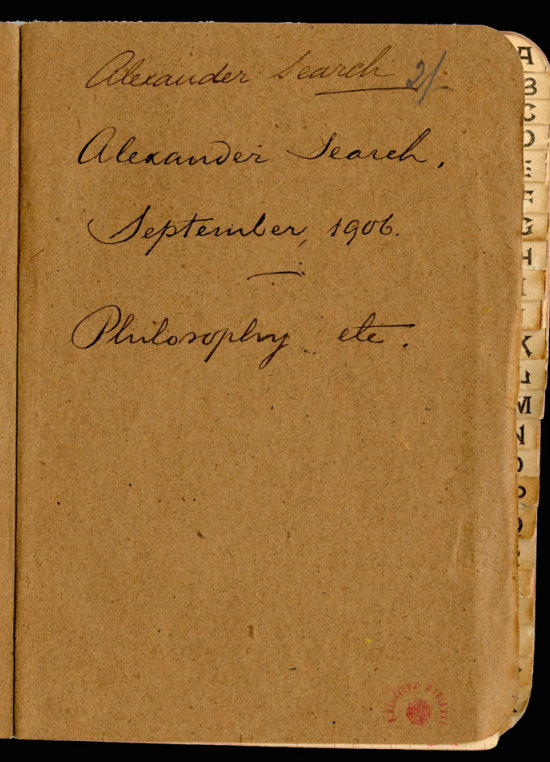 Alexander Search 2/-
Alexander Search.
September, 1906.
Philosophy etc.
A
B
C
D
E
F
G
H
I
K
L
M
N
O
P